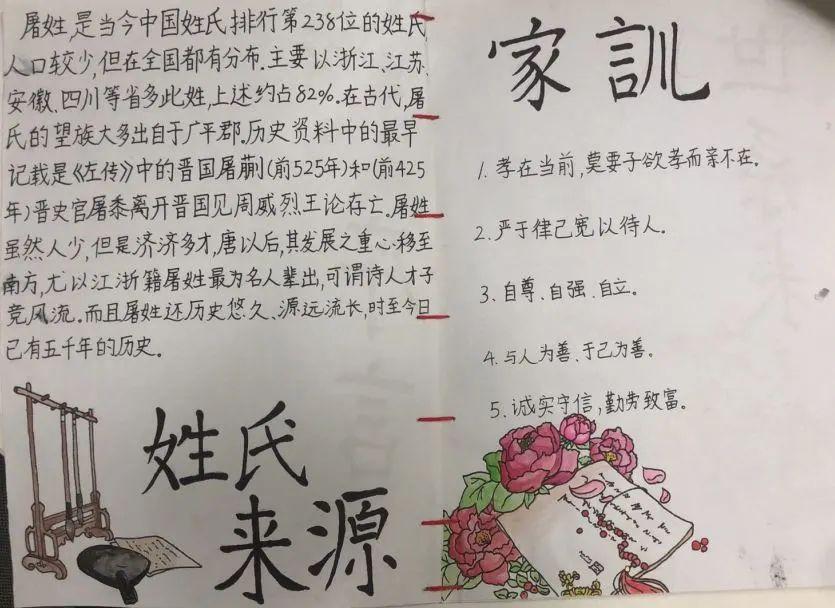 屠姓,是当今中国姓氏排行第238位的姓氏
人口较少,但在全国都有分布.主要以浙江、江苏、
安徽、四川等省多此姓,上述约占82%.在古代,屠
氏的望族大多出自于广平郡.历史资料中的最早
记载是《左传》中的晋国屠蒯(前525年)和(前425
年)晋史官屠黍离开晋国见周威烈王论存亡.屠姓
虽然人少,但是济济多才,唐以后,其发展之重心移至
南方,尤以江浙籍屠姓最为名人辈出,可谓诗人才子
竞风流.而且屠姓还历史悠久、源远流长,时至今日
已有五千年的历史.
姓氏
来源
家訓
1.孝在当前,莫要子欲孝而亲不在。
2.严于律己宽以待人.
3.自尊、自强、自立.
4.与人为善、于己为善。
5.诚实守信,勤劳致富。